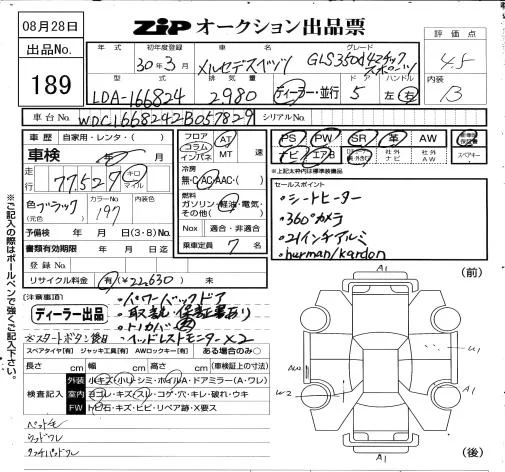 08月28日
ZiP オークション出品票
出品No.
189
年式
30年
初年度登録
3月
車名
メルセデスベンツ
グレード
GLS350d 4マチック
スポーツ
型式
LDA-166824
排気量
2980
ディーラー・並行
ドア
5
ハンドル
左 右
評価点
4.5
内装
B
車台No.
WDC1668242B057829
シリアルNo.
車歴
自家用・レンタ・( )
車検
年 月
走行
77,527
キロ
マイル
色
(元色)
ブラック
カラーNo.
197
内装色
予備検 年 月 日(3・8)No.
書類有効期限 年 月 日迄
登録No.
リサイクル料金 有(¥22,630) 未
フロア
コラム
インパネ
AT
MT
速
冷房
無・C・AC・AAC・( )
燃料
ガソリン・軽油・電気・
その他( )
Nox 適合・非適合
乗車定員 7 名
PS PW SR 革 AW
ナビ エアB 社外ナビ 社外AW スペアキー
※上記太枠内は標準装備品
セールスポイント
・シートヒーター
・360°カメラ
・21インチアルミ
・harman/kardon
※ご記入の際はボールペンで強くご記入下さい。
(注意事項)
ディーラー出品
・パワーバックドア
・取説、保証書あり
・トノカバー
※スタートボタン後日
・ヘッドレストモニター×2
スペアタイヤ[有] ジャッキ工具[有] AWロックキー[有] ある場合のみ○
長さ cm 幅 cm 高さ cm (車検証上の寸法)
検査記入
外装 小キズ・小リ・シミ・ホイルA・ドアミラー(A・ワレ)
室内 ヨゴレ・キズ・スレ・コゲ・穴・キレ・破れ・ウキ
FW トビ石・キズ・ヒビ・リペア跡・X要ス
(前)
A1
U1
W2
A1
A1
(後)